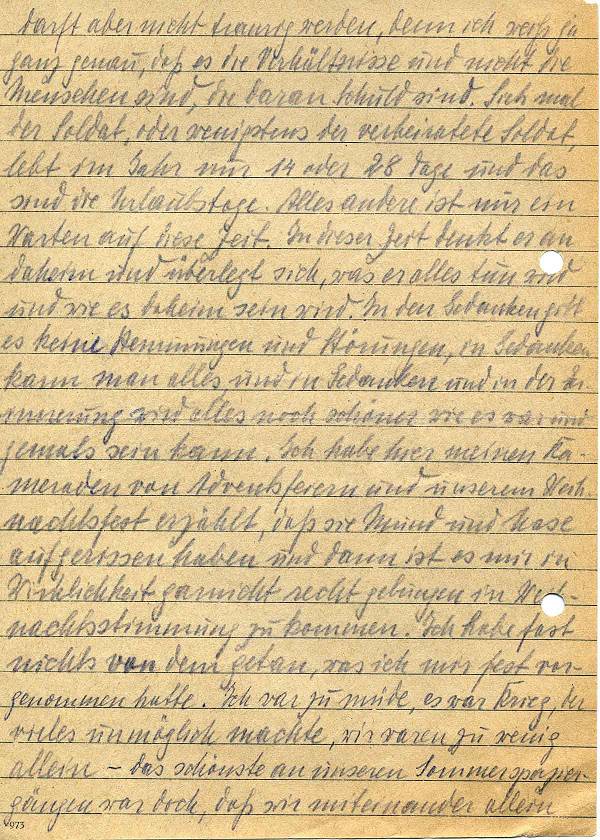 darfst aber nicht traurig werden, denn ich weiß ja
ganz genau, daß es die Verhältnisse und nicht die
Menschen sind, die daran Schuld sind. Sieh mal
der Soldat, oder wenigstens der verheiratete Soldat,
lebt im Jahr nur 14 oder 28 Tage und das
sind die Urlaubstage. Alles andere ist nur ein
Warten auf diese Zeit. In dieser Zeit denkt er an
daheim und überlegt sich, was er alles tun wird
und wie es daheim sein wird. In den Gedanken gibt
es keine Hemmungen und Störungen, in Gedanken
kann man alles und in Gedanken und in der Er-
innerung wird alles noch schöner wie es war und
jemals sein kann. Ich habe hier meinen Ka-
meraden von Adventsfeiern und unserem Weih-
nachtsfest erzählt, daß sie Mund und Nase
aufgerissen haben und dann ist es mir in
Wirklichkeit garnicht recht gelungen in Weih-
nachtsstimmung zu kommen. Ich habe fast
nichts von dem getan, was ich mir fest vor-
genommen hatte. Ich war zu müde, es war Krieg, der
vieles unmöglich machte, wir waren zu wenig
allein – das schönste an unseren Sommerspazier-
gängen war doch, daß wir miteinander allein
V973